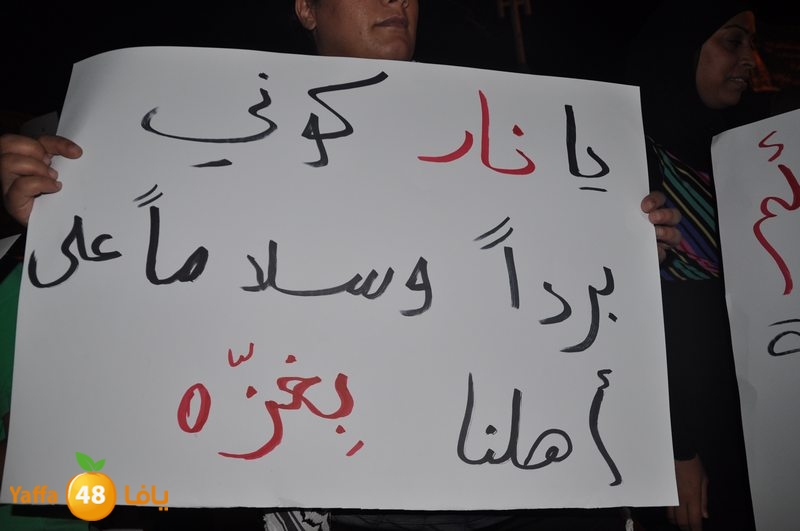 يا نار كوني
برداً وسلاماً على
أهلنا بِغزّه
Yaffa 48 يافا